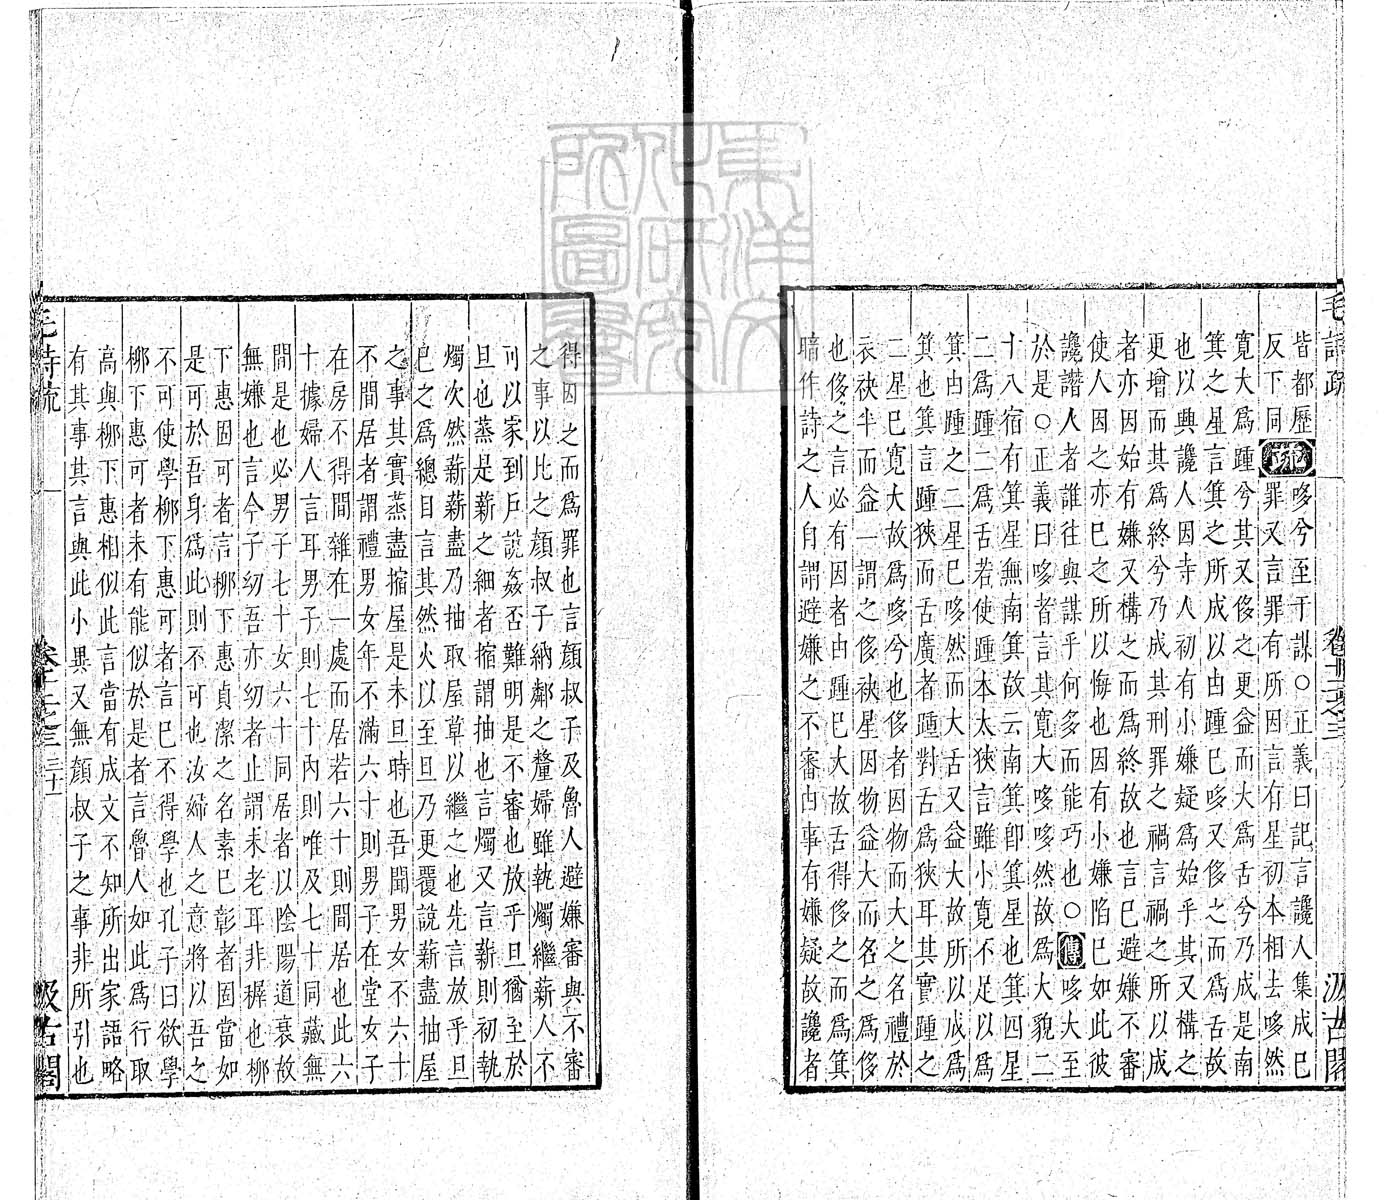 毛詩疏 卷十二之三 汲古閣
皆都歷
反下同
疏
哆兮至于謀○正義曰記言讒人集成已
罪又言罪有所因言有星初本相去哆然
寬大爲踵兮其又侈之更益而大爲舌兮乃成是南
箕之星言箕之所成以由踵已哆又侈之而爲舌故
也以興讒人因寺人初有小嫌疑爲始乎其又構之
更增而其爲終兮乃成其刑罪之禍言禍之所以成
者亦因始有嫌又構之而爲終故也言已避嫌不審
使人因之亦已之所以悔也因有小嫌陷已如此彼
讒譖人者誰往與謀乎何多而能巧也○傳哆大至
於是○正義曰哆者言其寬大哆哆然故爲大貌二
十八宿有箕星無南箕故云南箕卽箕星也箕四星
二爲踵二爲舌若使踵本太狹言雖小寬不足以爲
箕由踵之二星已哆然而大舌又益大故所以成爲
箕也箕言踵狹而舌廣者踵對舌爲狹耳其實踵之
二星已寬大故爲哆兮也侈者因物而大之名禮於
衣袂半而益一謂之侈袂星因物益大而名之爲侈
也侈之言必有因者由踵已大故舌得侈之而爲箕
暗作詩之人自謂避嫌之不審由事有嫌疑故讒者
得因之而爲罪也言顔叔子及魯人避嫌審與不審
之事以比之顔叔子納鄰之釐婦雖執燭繼薪人不
可以家到戶說姦否難明是不審也放乎旦猶至於
旦也蒸是薪之細者縮謂抽也言燭又言薪則初執
燭次然薪薪盡乃抽取屋草以繼之也先言放乎旦
已之爲總目言其然火以至旦乃更覆說薪盡抽屋
之事其實蒸盡縮屋是未旦時也吾聞男女不六十
不間居者謂禮男女年不滿六十則男子在堂女子
在房不得間雜在一處而居若六十則間居也此六
十據婦人言耳男子則七十內則唯及七十同藏無
間是也必男子七十女六十同居者以陰陽道衰故
無嫌也言今子幼吾亦幼者止謂未老耳非穉也柳
下惠固可者言柳下惠貞潔之名素已彰者固當如
是可於吾身爲此則不可也汝婦人之意將以吾之
不可使學柳下惠可者言已不得學也孔子曰欲學
柳下惠可者未有能似於是者言魯人如此爲行取
高與柳下惠相似此言當有成文不知所出家語略
有其事其言與此小異又無顔叔子之事非所引也
毛詩疏 卷十二之三 三十一 汲古閣
東洋文化研究所圖書